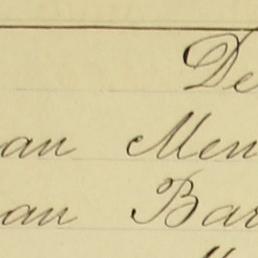 De
an Men
an Bar